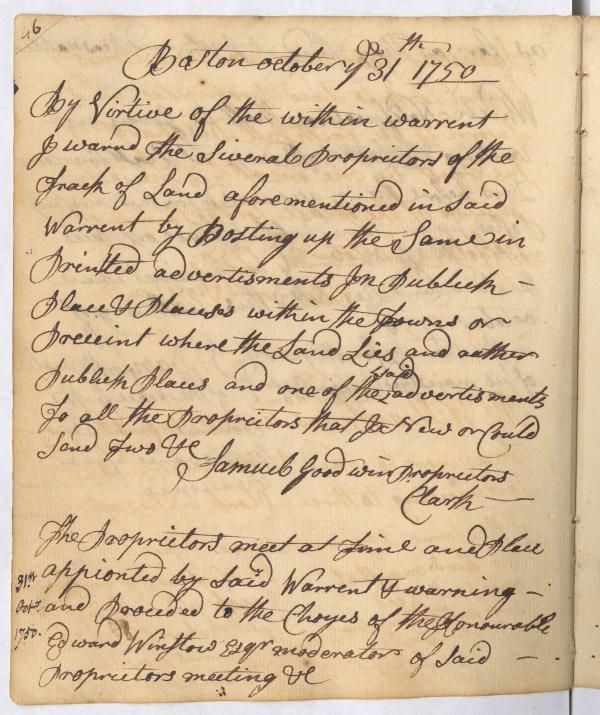 46
Baston october ye 31th 1750
By Virtive of the within warrent
I warnd the Siveral Proprietors of the
Track of Land aforementioned in Said
Warrent by Posting up the Same in
Printed advertisments In Publick -
Place & Plauses within the Towns or
Precint where the Land Lies and aather
Publick Places and one of the said advertisments
To all the Proprietors that I New or Could
Send Two &c
Samuel Goodwin Proprietors
Clark -
The Proprietors meet at Time and Place
appionted by Said Warrent & warning -
31th Octr 1750.
and Proceded to the Choyes of the Honourable
Edward Winslow Esqr moderator of Said -
Proprietors meeting &c